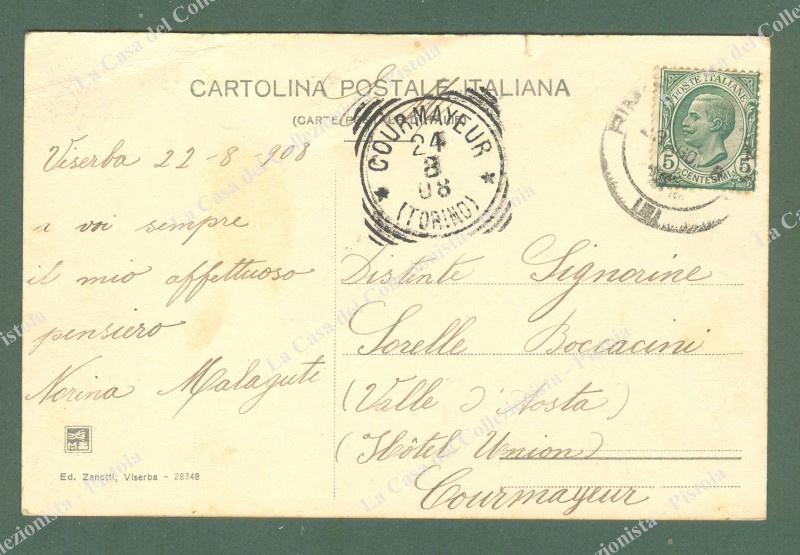 CARTOLINA POSTALE ITALIANA
(CARTE POSTALE ITALIENNE)
COURMAYEUR
24
8
08
(TORINO)
POSTE ITALIANE
5 5
CENTESIMI
Viserba 22-8-908
a voi sempre
il mio affettuoso
pensiero
Norina Malaguti
Distinte Signorine
Sorelle Boccacini
(Valle d'Aosta)
(Hôtel Union)
Courmayeur
Ed. Zanotti, Viserba - 28348
La Casa del Collezionista - Pistoia